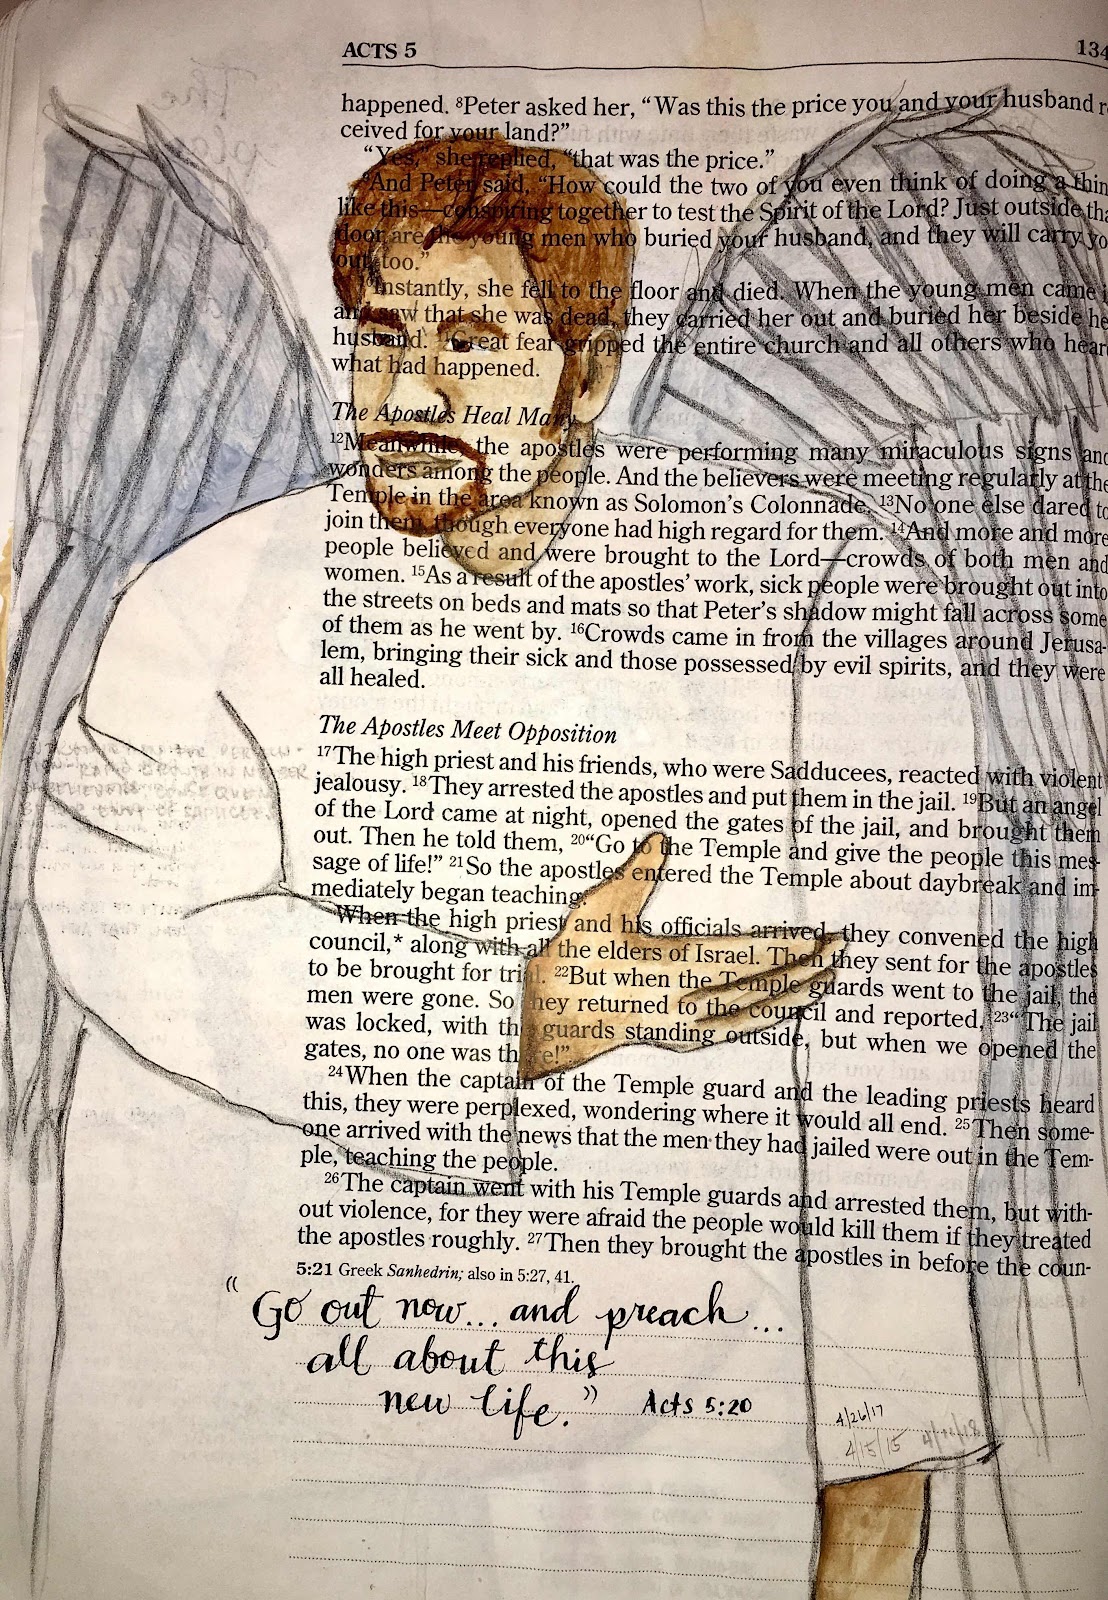 ACTS 5
134
happened. ⁸Peter asked her, “Was this the price you and your husband re
ceived for your land?”
“Yes,” she replied, “that was the price.”
⁹And Peter said, “How could the two of you even think of doing a thin
like this—conspiring together to test the Spirit of the Lord? Just outside tha
door are the young men who buried your husband, and they will carry yo
out, too.”
¹⁰Instantly, she fell to the floor and died. When the young men came i
and saw that she was dead, they carried her out and buried her beside he
husband. ¹¹Great fear gripped the entire church and all others who hear
what had happened.
The Apostles Heal Many
¹²Meanwhile, the apostles were performing many miraculous signs and
wonders among the people. And the believers were meeting regularly at the
Temple in the area known as Solomon’s Colonnade. ¹³No one else dared to
join them, though everyone had high regard for them. ¹⁴And more and more
people believed and were brought to the Lord—crowds of both men and
women. ¹⁵As a result of the apostles’ work, sick people were brought out into
the streets on beds and mats so that Peter’s shadow might fall across some
of them as he went by. ¹⁶Crowds came in from the villages around Jerusa-
lem, bringing their sick and those possessed by evil spirits, and they were
all healed.
The Apostles Meet Opposition
¹⁷The high priest and his friends, who were Sadducees, reacted with violent
jealousy. ¹⁸They arrested the apostles and put them in the jail. ¹⁹But an angel
of the Lord came at night, opened the gates of the jail, and brought them
out. Then he told them, ²⁰“Go to the Temple and give the people this mes-
sage of life!” ²¹So the apostles entered the Temple about daybreak and im-
mediately began teaching.
When the high priest and his officials arrived, they convened the high
council,* along with all the elders of Israel. Then they sent for the apostles
to be brought for trial. ²²But when the Temple guards went to the jail, the
men were gone. So they returned to the council and reported, ²³“The jail
was locked, with the guards standing outside, but when we opened the
gates, no one was there!”
²⁴When the captain of the Temple guard and the leading priests heard
this, they were perplexed, wondering where it would all end. ²⁵Then some-
one arrived with the news that the men they had jailed were out in the Tem-
ple, teaching the people.
²⁶The captain went with his Temple guards and arrested them, but with-
out violence, for they were afraid the people would kill them if they treated
the apostles roughly. ²⁷Then they brought the apostles in before the coun-
5:21 Greek Sanhedrin; also in 5:27, 41.
“Go out now... and preach...
all about this
new life.” Acts 5:20
4/26/17
4/15/15